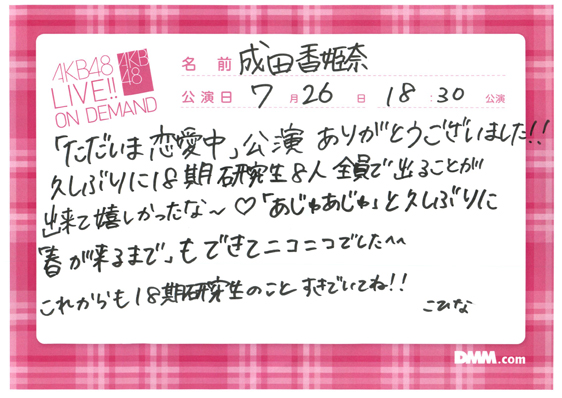 AKB48
LIVE!!
ON DEMAND
AKB
48
名 前 成田香姫奈
公演日 7月26日 18:30公演
「ただいま恋愛中」公演 ありがとうございました!!
久しぶりに18期研究生8人全員で出ることが
出来て嬉しかったな〜♡「あじゃあじゃ」と久しぶりに
「春が来るまで」もできてニコニコでした^^
これからも18期研究生のことすきでいてね!!
こひな
DMM.com